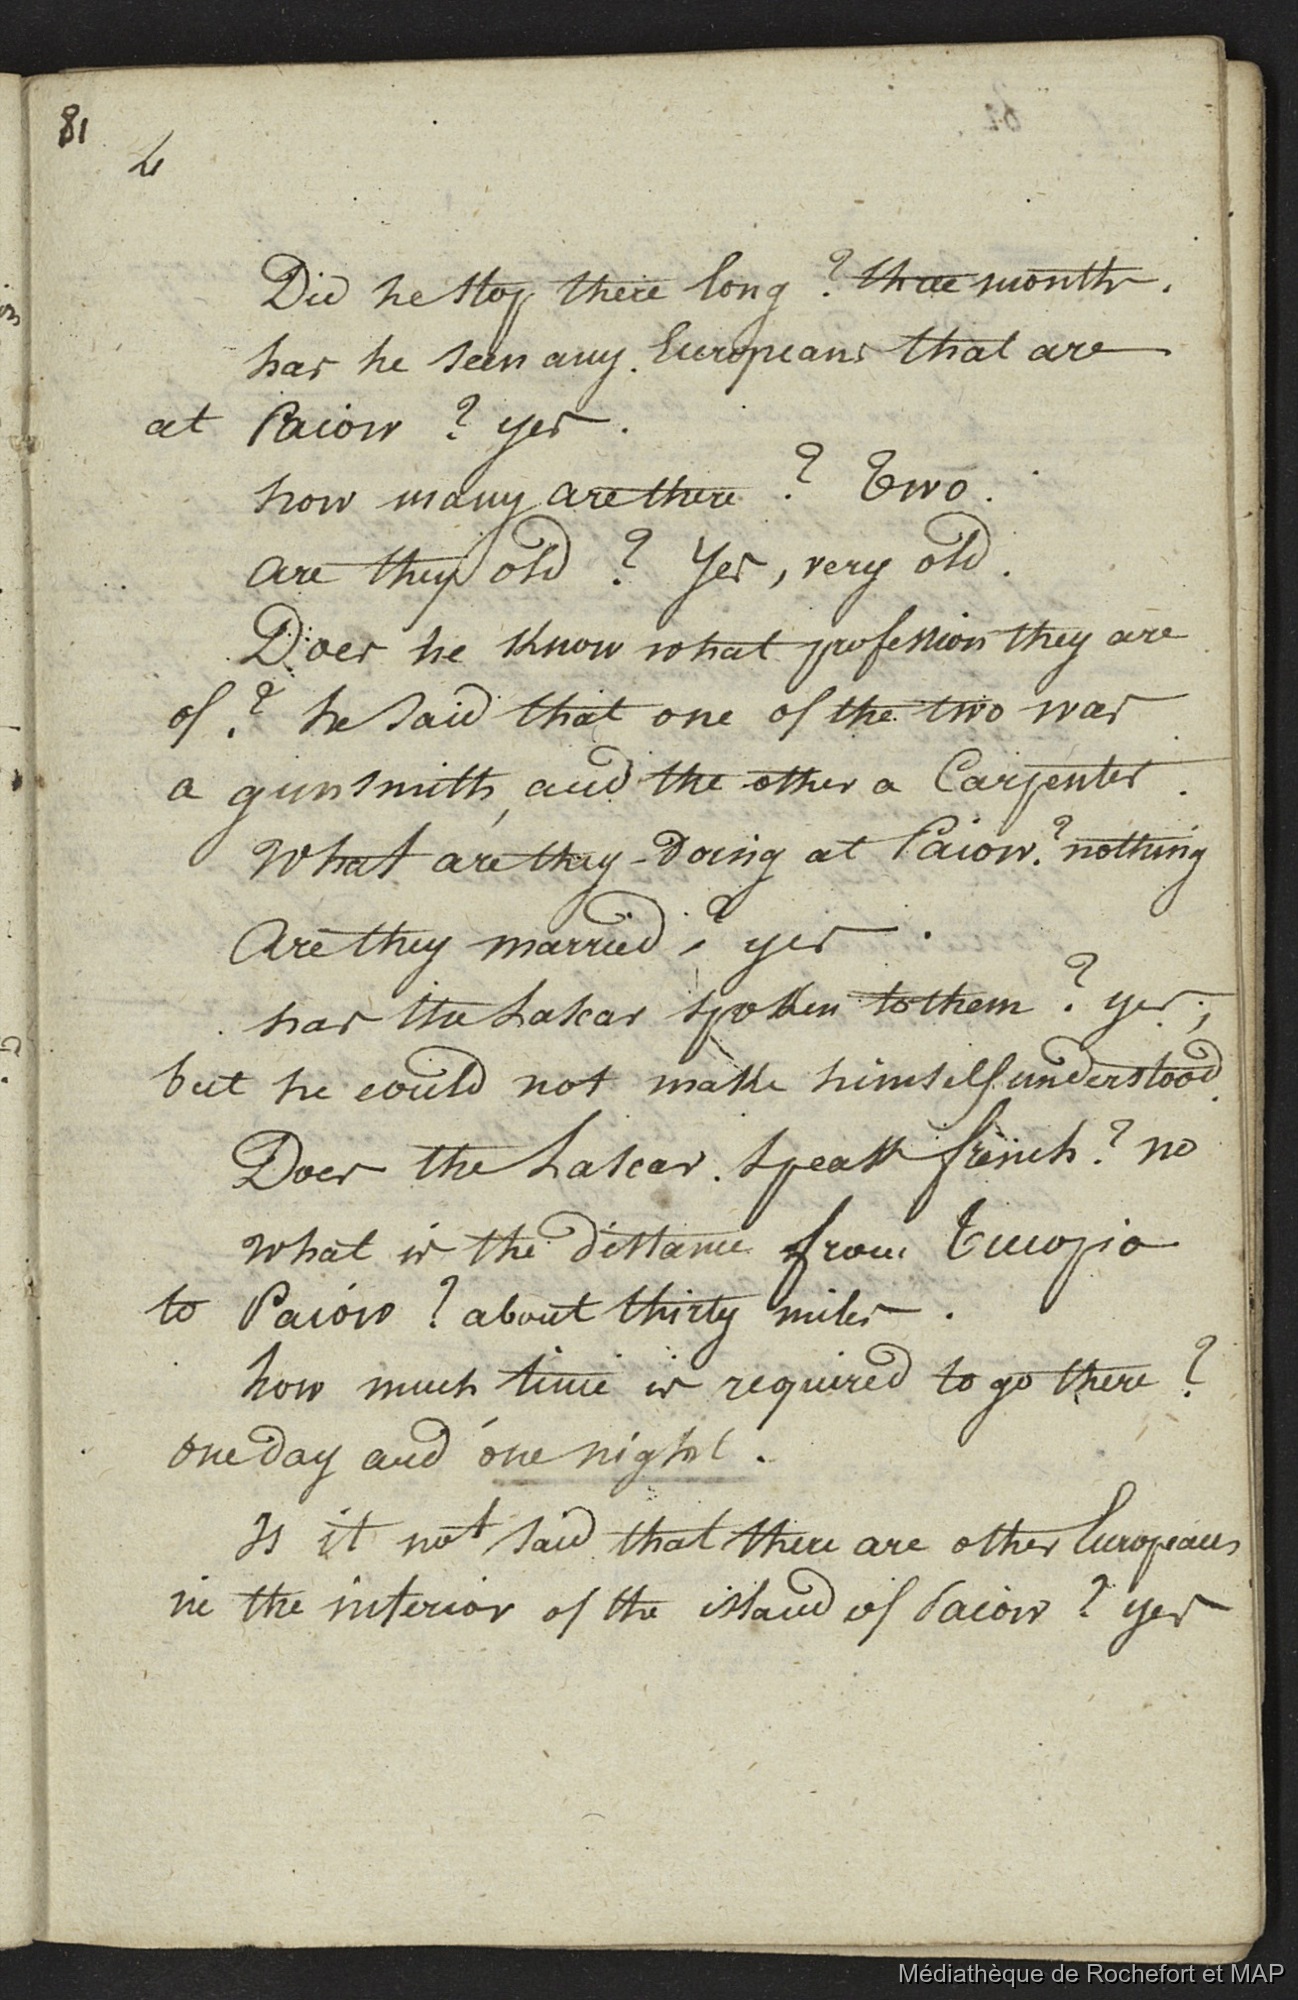 81
Did he stop there long? three months.
has he seen any Europeans that are
at Paiow? yes.
how many are there? Two.
are they old? Yes, very old.
Does he know what profession they are
of? he said that one of the two was
a gunsmith, and the other a Carpenter.
What are they doing at Paiow? nothing
Are they married? yes.
has the Laskar spoken to them? yes;
but he could not make himself understood.
Does the Lascar speak french? no
what is the distance from Tucopia
to Paiow? about thirty miles.
how much time is required to go there?
one day and one night.
Is it not said that there are other Europeans
in the interior of the island of Paiow? yes
Médiathèque de Rochefort et MAP